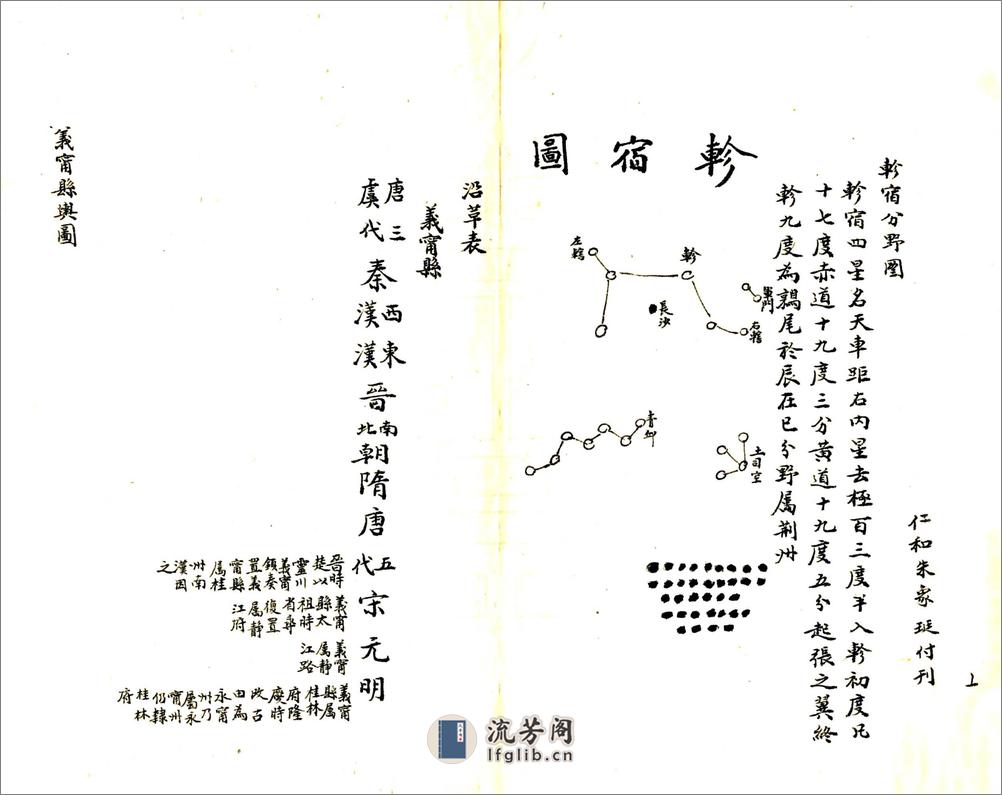 上
仁和朱象珽付刊
軫宿分野圖
軫宿四星名天車距右内星去極百三度半入軫初度凡
十七度赤道十九度三分黄道十九度五分起張之翼終
軫九度為鶉尾於辰在巳分野属荆州
軫宿圖
軍門
右轄
軫
長沙
左轄
土司空
青邱
沿革表
義甯縣
唐虞三代
秦
西漢
東漢
晉
南北朝
隋
唐
五代
晉時楚以靈川義甯領奏置義甯縣属桂州南漢因之
宋
義甯縣太祖時省尋復置属靜江府
元
義甯属靜江路
明
義甯縣属桂林府隆慶時改古田為永甯州乃屬永甯州仍隸桂林府
義甯縣輿圖
流芳阁
lfglib.cn